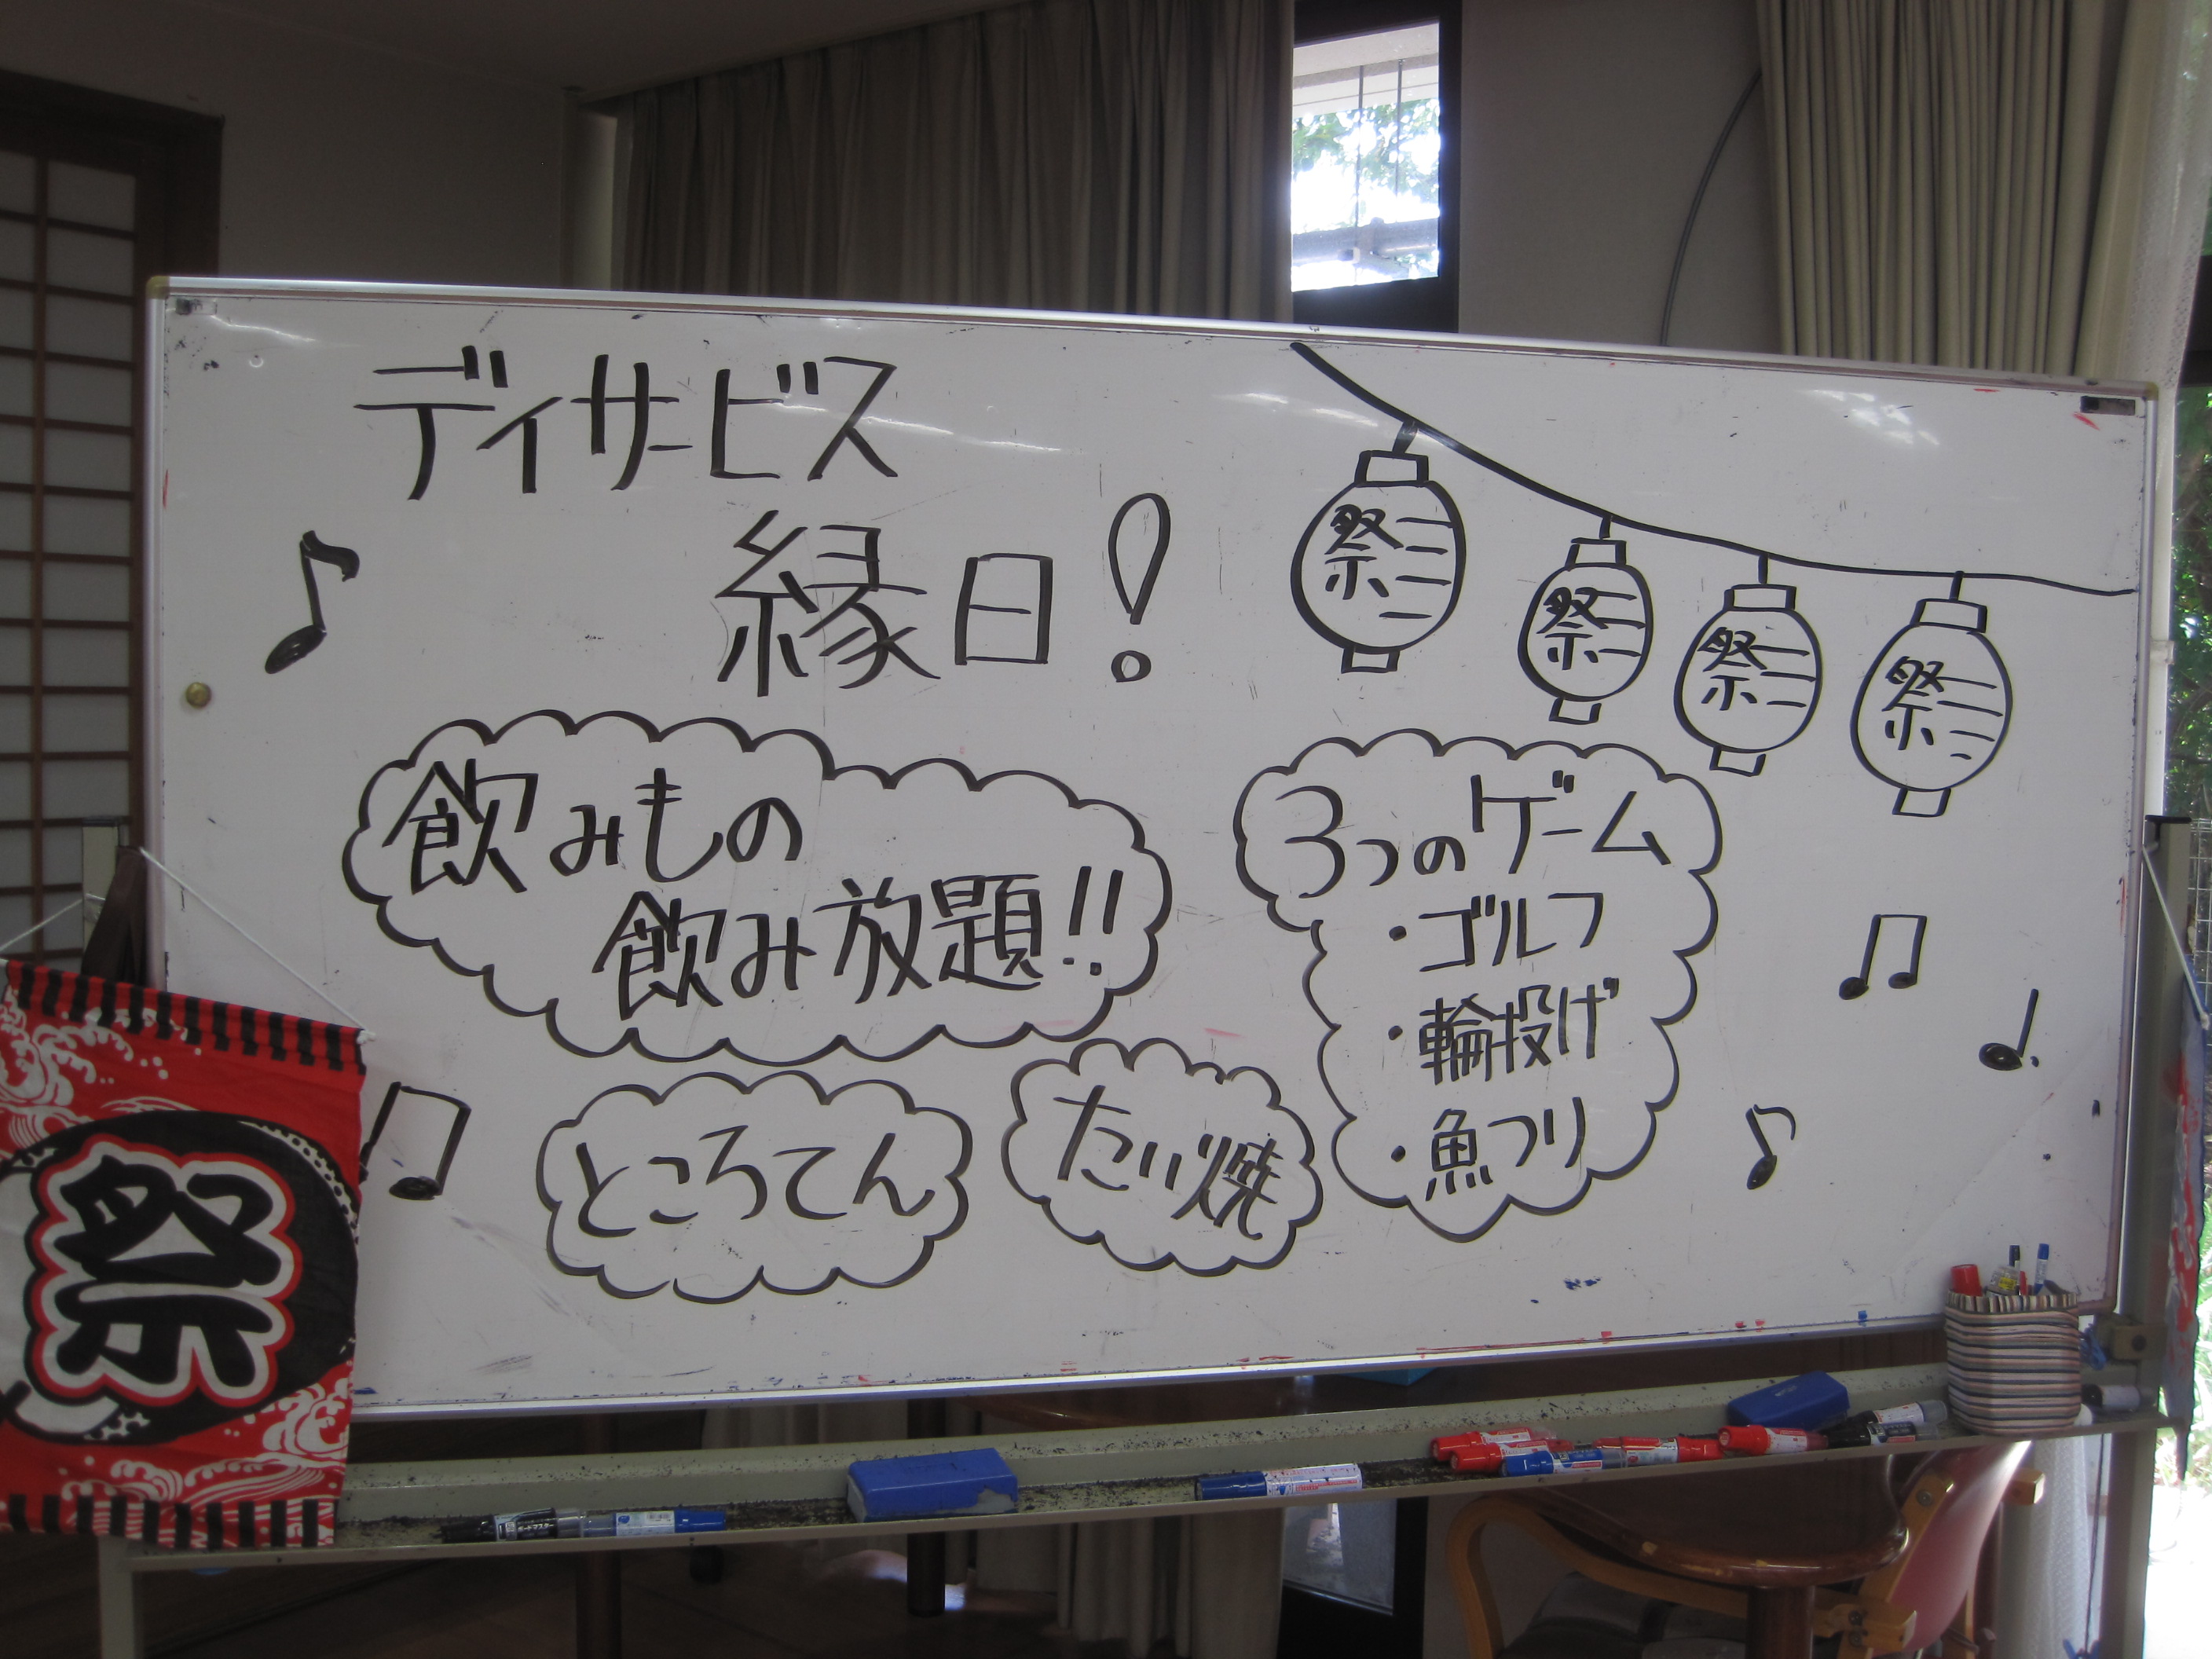 ディサービス
縁日!
祭
祭
祭
祭
飲みもの
飲み放題!!
3つのゲーム
・ゴルフ
・輪投げ
・魚つり
ところてん
たい焼
祭